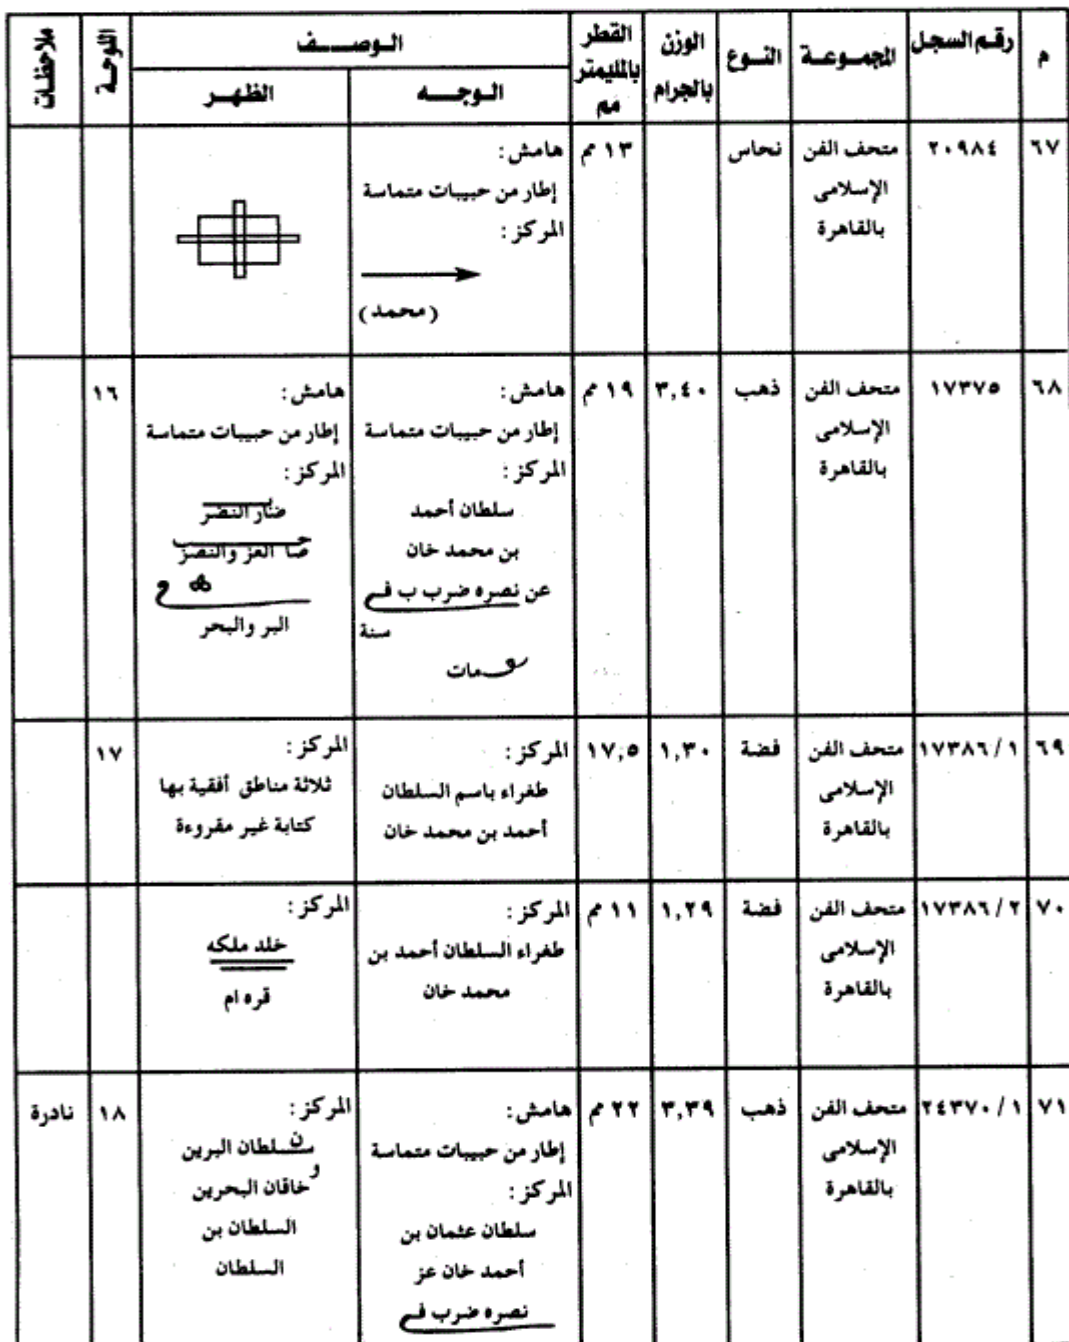 م
رقم السجل
المجموعة
النوع
الوزن بالجرام
القطر بالمليمتر مم
الوصف
الوجه
الظهر
اللوحة
ملاحظات
٦٧
٢٠٩٨٤
متحف الفن
الإسلامى
بالقاهرة
نحاس
١٣ مم
هامش:
إطار من حبيبات متماسة
المركز:
(محمد)
٦٨
١٧٣٧٥
متحف الفن
الإسلامى
بالقاهرة
ذهب
٣,٤٠
١٩ مم
هامش:
إطار من حبيبات متماسة
المركز:
سلطان أحمد
بن محمد خان
عن نصره ضرب ب فى
سنة
مات
هامش:
إطار من حبيبات متماسة
المركز:
ضار النضر
صا العز والنصر
البر والبحر
١٦
٦٩
١٧٣٨٦/١
متحف الفن
الإسلامى
بالقاهرة
فضة
١,٣٠
١٧,٥
المركز:
طغراء باسم السلطان
أحمد بن محمد خان
المركز:
ثلاثة مناطق أفقية بها
كتابة غير مقروءة
١٧
٧٠
١٧٣٨٦/٢
متحف الفن
الإسلامى
بالقاهرة
فضة
١,٢٩
١١ مم
المركز:
طغراء السلطان أحمد بن
محمد خان
المركز:
خلد ملكه
قره ام
٧١
٢٤٣٧٠/١
متحف الفن
الإسلامى
بالقاهرة
ذهب
٣,٣٩
٢٢ مم
هامش:
إطار من حبيبات متماسة
المركز:
سلطان عثمان بن
أحمد خان عز
نصره ضرب فى
المركز:
سلطان البرين
و خاقان البحرين
السلطان بن
السلطان
١٨
نادرة